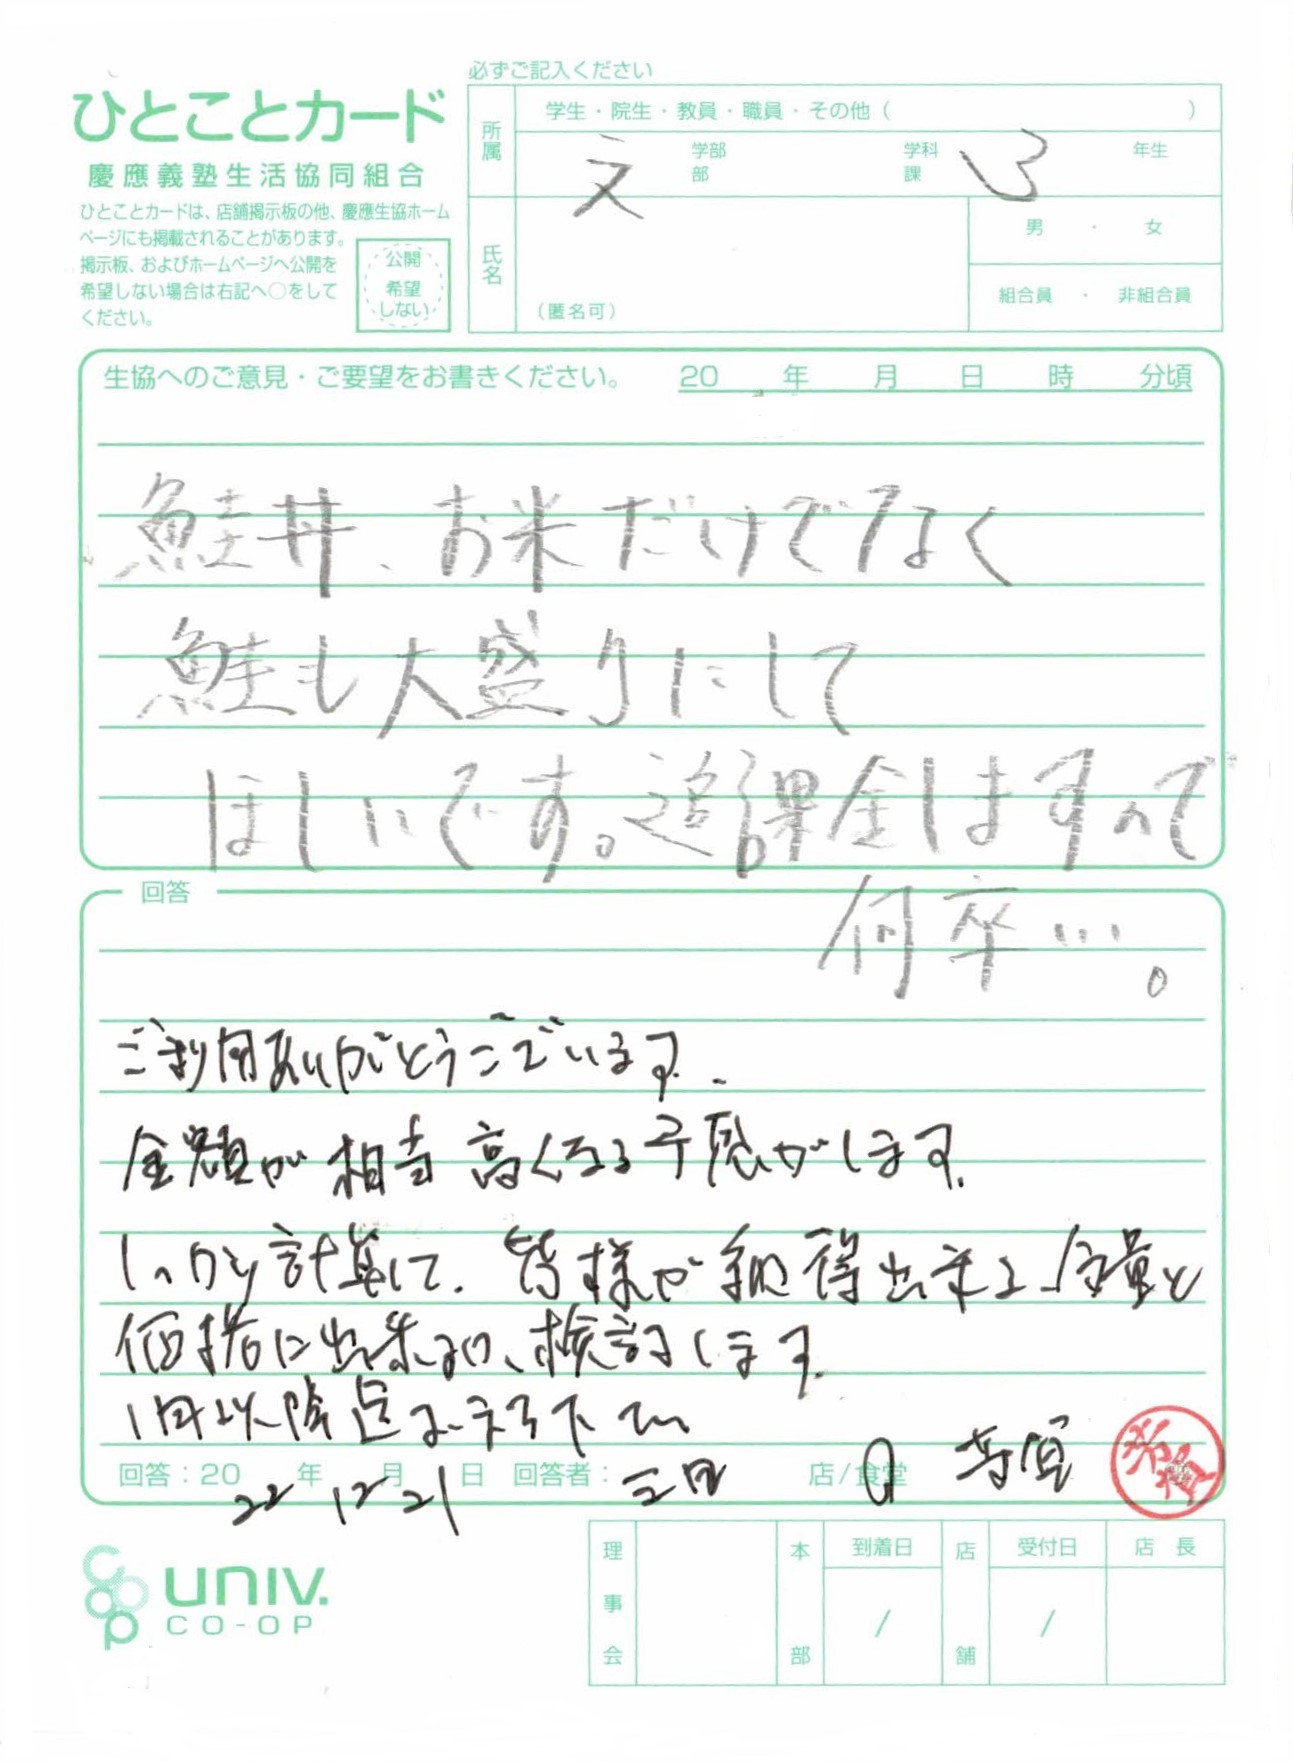 必ずご記入ください
ひとことカード
慶應義塾生活協同組合
ひとことカードは、店舗掲示板の他、慶應生協ホーム
ページにも掲載されることがあります。
掲示板、およびホームページへ公開を
希望しない場合は右記へ○をして
ください。
公開
希望
しない
所属
学生・院生・教員・職員・その他（　）
文 学部 学科 3 年生
部 課
氏名
（匿名可）
男 ・ 女
組合員 ・ 非組合員
生協へのご意見・ご要望をお書きください。 20 年 月 日 時 分頃
鮭丼、お米だけでなく
鮭も大盛りにして
ほしいです。追課金しますので
何卒…。
回答
ご利用ありがとうございます。
金額が相当高くなる予感がします。
しっかり計算して、皆様が納得出来る分量と
価格に出来るか、検討します。
1月以降迄お待ち下さい
回答：20 22 年 12 月 21 日 回答者： 三田 店/食堂
univ.
CO-OP
理事会
本部
到着日
/
店舗
受付日
/
店長